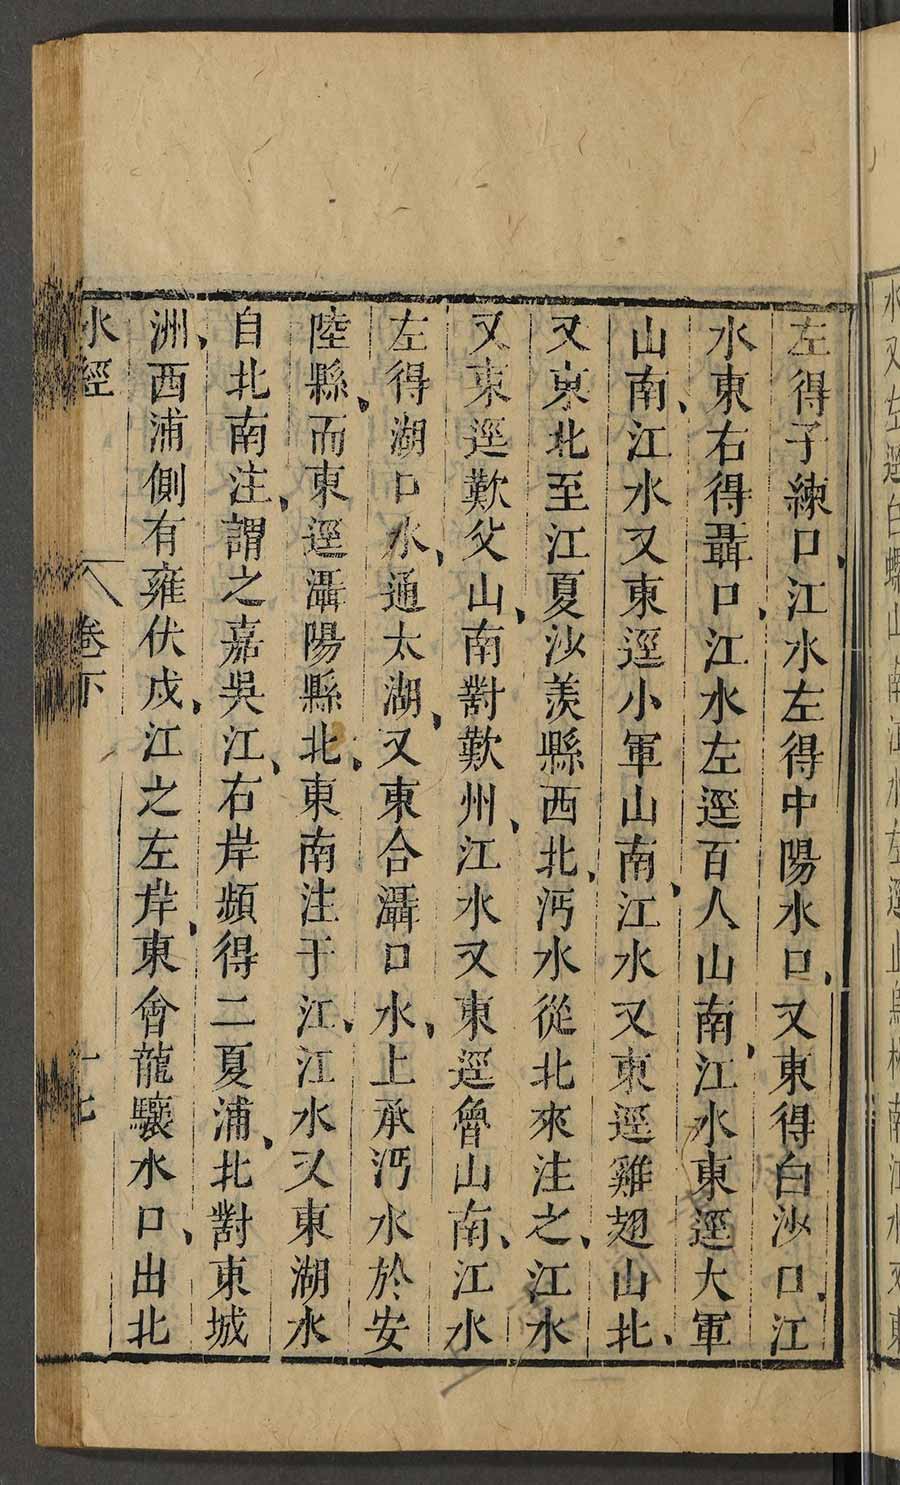 左得子練口、江水左得中陽水口、又東得白沙口、江
水東右得聶口、江水左逕百人山南、江水東逕大軍
山南、江水又東逕小軍山南、江水又東逕雞翅山北、
又東北至江夏沙羨縣西北、沔水從北來注之、江水
又東逕歎父山、南對歎州、江水又東逕魯山南、江水
左得湖口水、通太湖、又東合灄口水、上承沔水於安
陸縣、而東逕灄陽縣北、東南注于江、江水又東湖水
自北南注、謂之嘉吳江、右岸頻得二夏浦、北對東城
洲、西浦側有雍伏戍、江之左岸、東會龍驤水口、出北
水經
卷下
十七